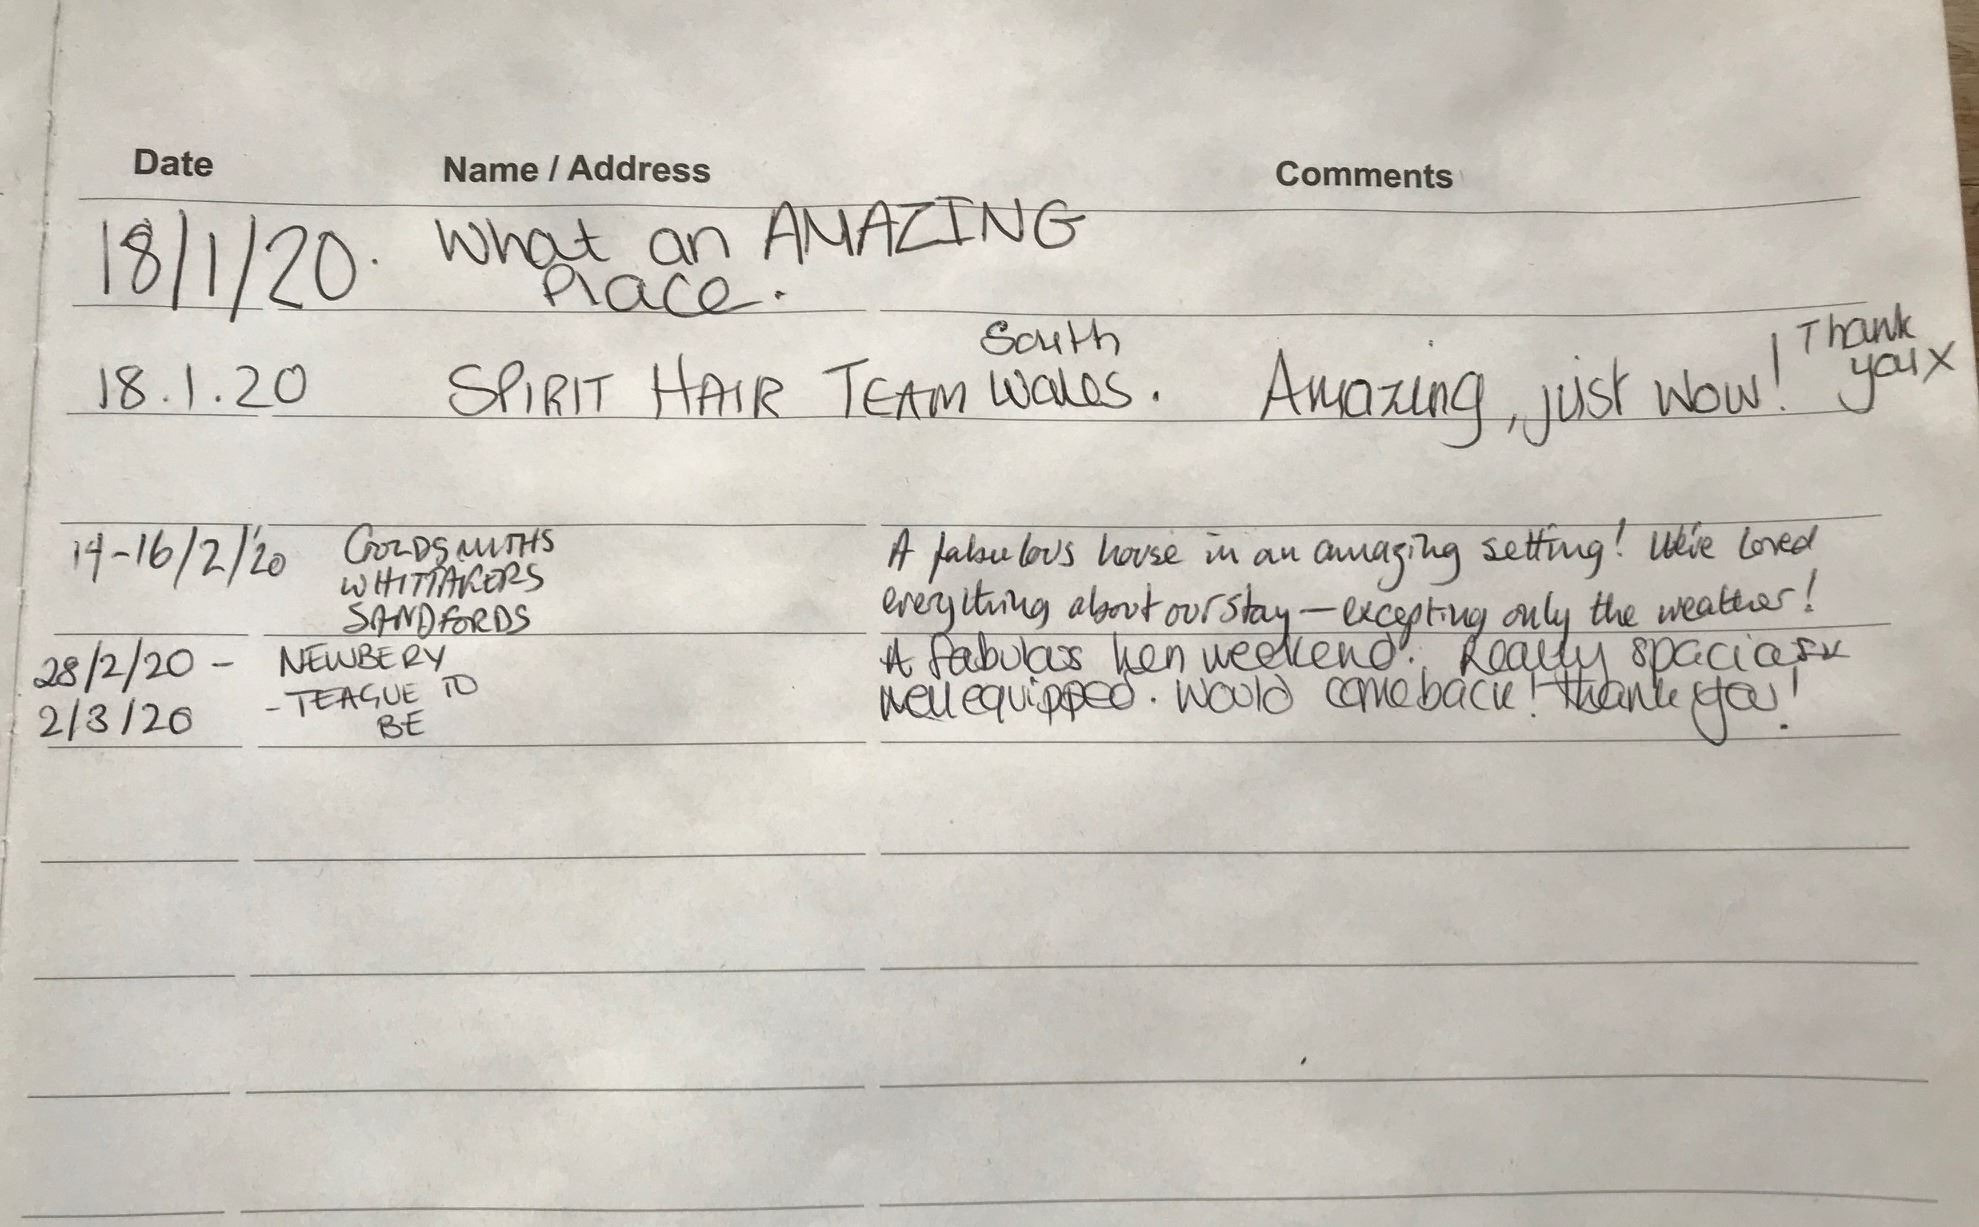 Date Name / Address Comments
18/1/20. What an AMAZING
Place.
18.1.20 SPIRIT HAIR TEAM South Wales. Amazing, just wow! Thank you x
14-16/2/'20 GOLDSMITHS A fabulous house in an amazing setting! We've loved
WHITTAKERS everything about our stay — excepting only the weather!
SANDFORDS
28/2/20 - NEWBERY A fabulous hen weekend. Really spacious &
2/3/20 - TEAGUE TO well equipped. Would come back! Thank you!
BE